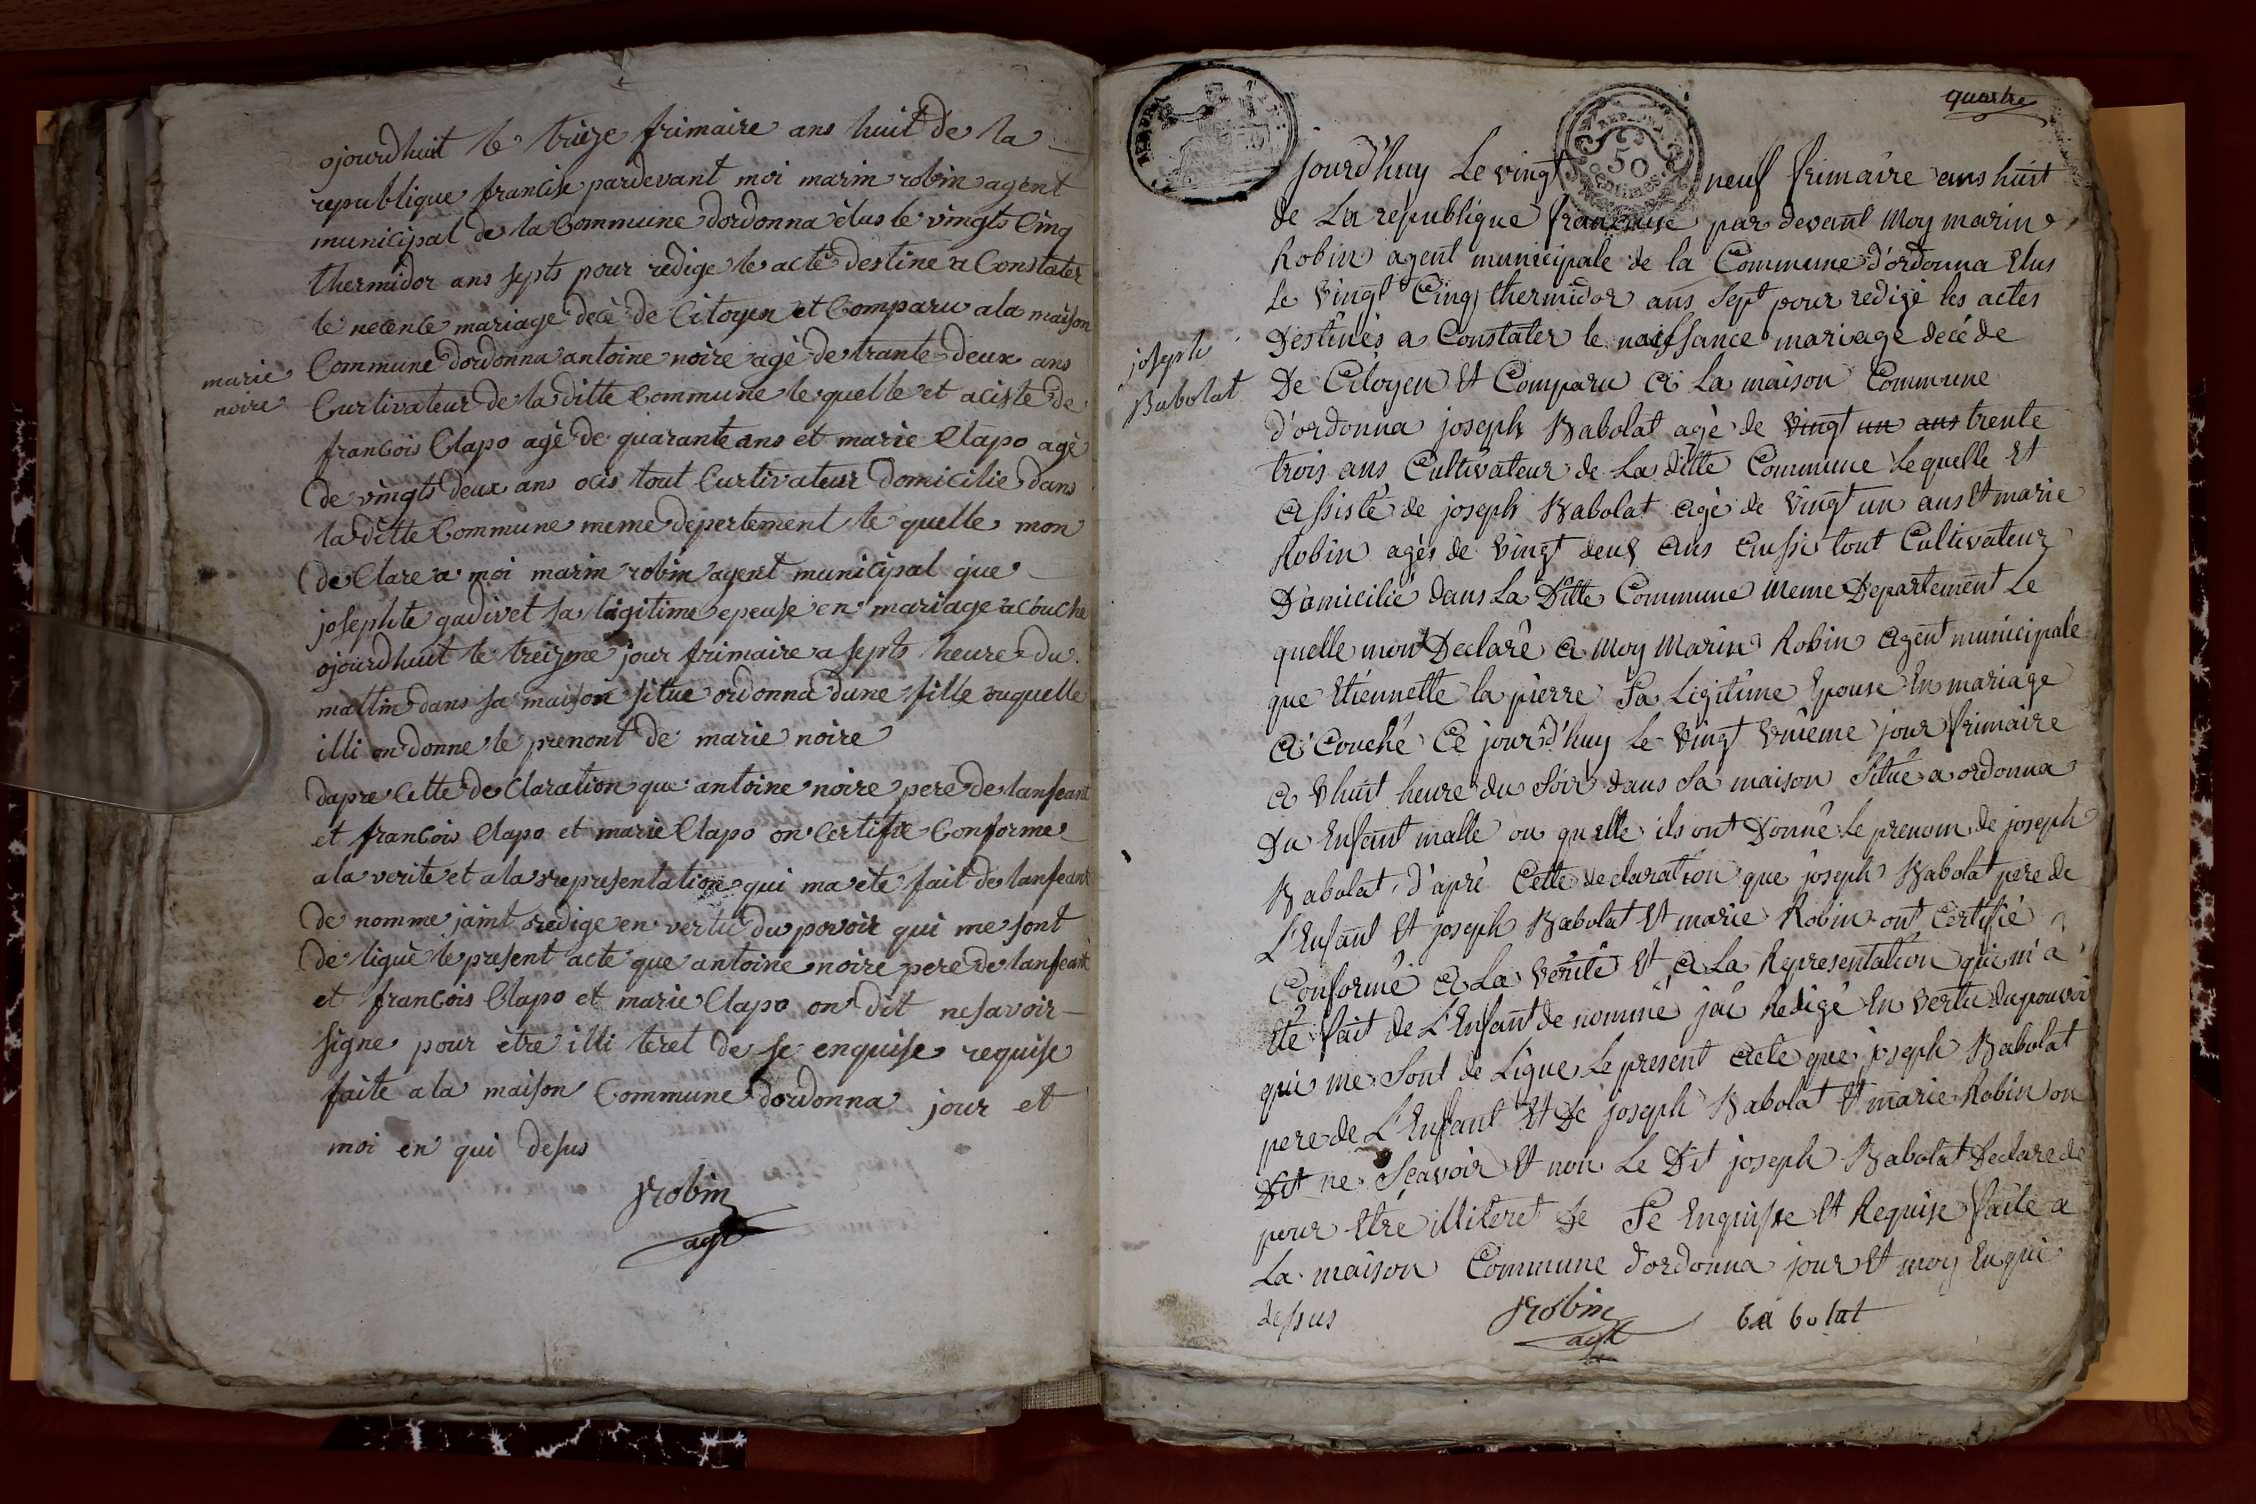 ojourdhuit le treize frimaire ans huit de la
republique francise pardevant moi marin robin agent
municipal de la Commune dordonna èlus le vingts Cinq
thermidor ans septs pour redige le acte destine a Constater
le necence mariage decè de Citoyen et Comparu a la maison
Commune dordonna antoine noire agè de trante deux ans
Curtivateur de la ditte Commune le quelle et aciste de
francois Clapo agè de quarante ans et marie Clapo agè
de vingts deux ans ocis tout Curtivateur domicilie dans
la ditte Commune meme depertement le quelle mon
de Clare a moi marin robin agent municipal que
josephte gadivet sa lègitime epeuse en mariage acouche
ojourdhuit le treizme jour frimaire a septs heure du
mattin dans sa maison situe ordonna dune fille ouquelle
illi on donne le prenont de marie noire
dapre Cette de Claration que antoine noire pere de lanfeant
et francois Clapo et marie Clapo on Certifie Conforme
a la verite et a la representation qui ma ete fait de lanfeant
de nomme jaint redige en vertu du povoir qui me sont
de liguè le present acte que antoine noire pere de lanfeant
et francois Clapo et marie Clapo on dit ne savoir
signe pour ètre illi teret de se enquise requise
faite a la maison Commune dordonna jour et
moi en qui desus
Robin
agt
marie
noire
quatre
REP. FRA.
50
centimes
jourd'huy Le vingt neuf frimaire ans huit
de La republique francaise par devant Moy marin
Robin agent municipale de la Commune d'ordonna Elus
Le Vingt Cinq thermidor ans Sept pour redigé les actes
Destinés a Constater le naissance mariage decé de
De Citoyen Et Comparu a La maison Commune
d'ordonna joseph Babolat agè de vingt un ans trente
trois ans Cultivateur de La ditte Commune Lequelle Et
assisté de joseph Babolat agè de Vingt un ans Et marie
Robin agés de Vingt deux ans aussi tout Cultivateur
Domicilié dans La Ditte Commune Meme Departement Le
quelle mont Declaré a Moy Marin Robin agent municipale
que Etiennette la pierre Sa Legitime Epouse En mariage
a Couché Ce jourd'huy Le Vingt Vnieme jour frimaire
a Vhuit heure du Soir dans Sa maison Situé a ordonna
Du Enfant malle ou quelle ils ont Donné Le prenom de joseph
Babolat, d'apré Cette declaration que joseph Babolat pere de
L'Enfant Et joseph Babolat Et marie Robin ont Certifié
Conformé a La Verité Et a La Representation qui m'a
Eté fait de L'Enfant de nommé jai Redigé En Vertu du pouvoir
qui me Sont de Ligue Le present acte que joseph Babolat
pere de L'Enfant Et De joseph Babolat Et marie Robin on
Dit ne Scavoir Et non Le Dit joseph Babolat Declare de
pour Etre illiteret De Se Enquisse Et Requise faite a
La maison Commune d'ordonna jour Et moy En qui
dessus
Robin
agt
babolat
joseph
Babolat